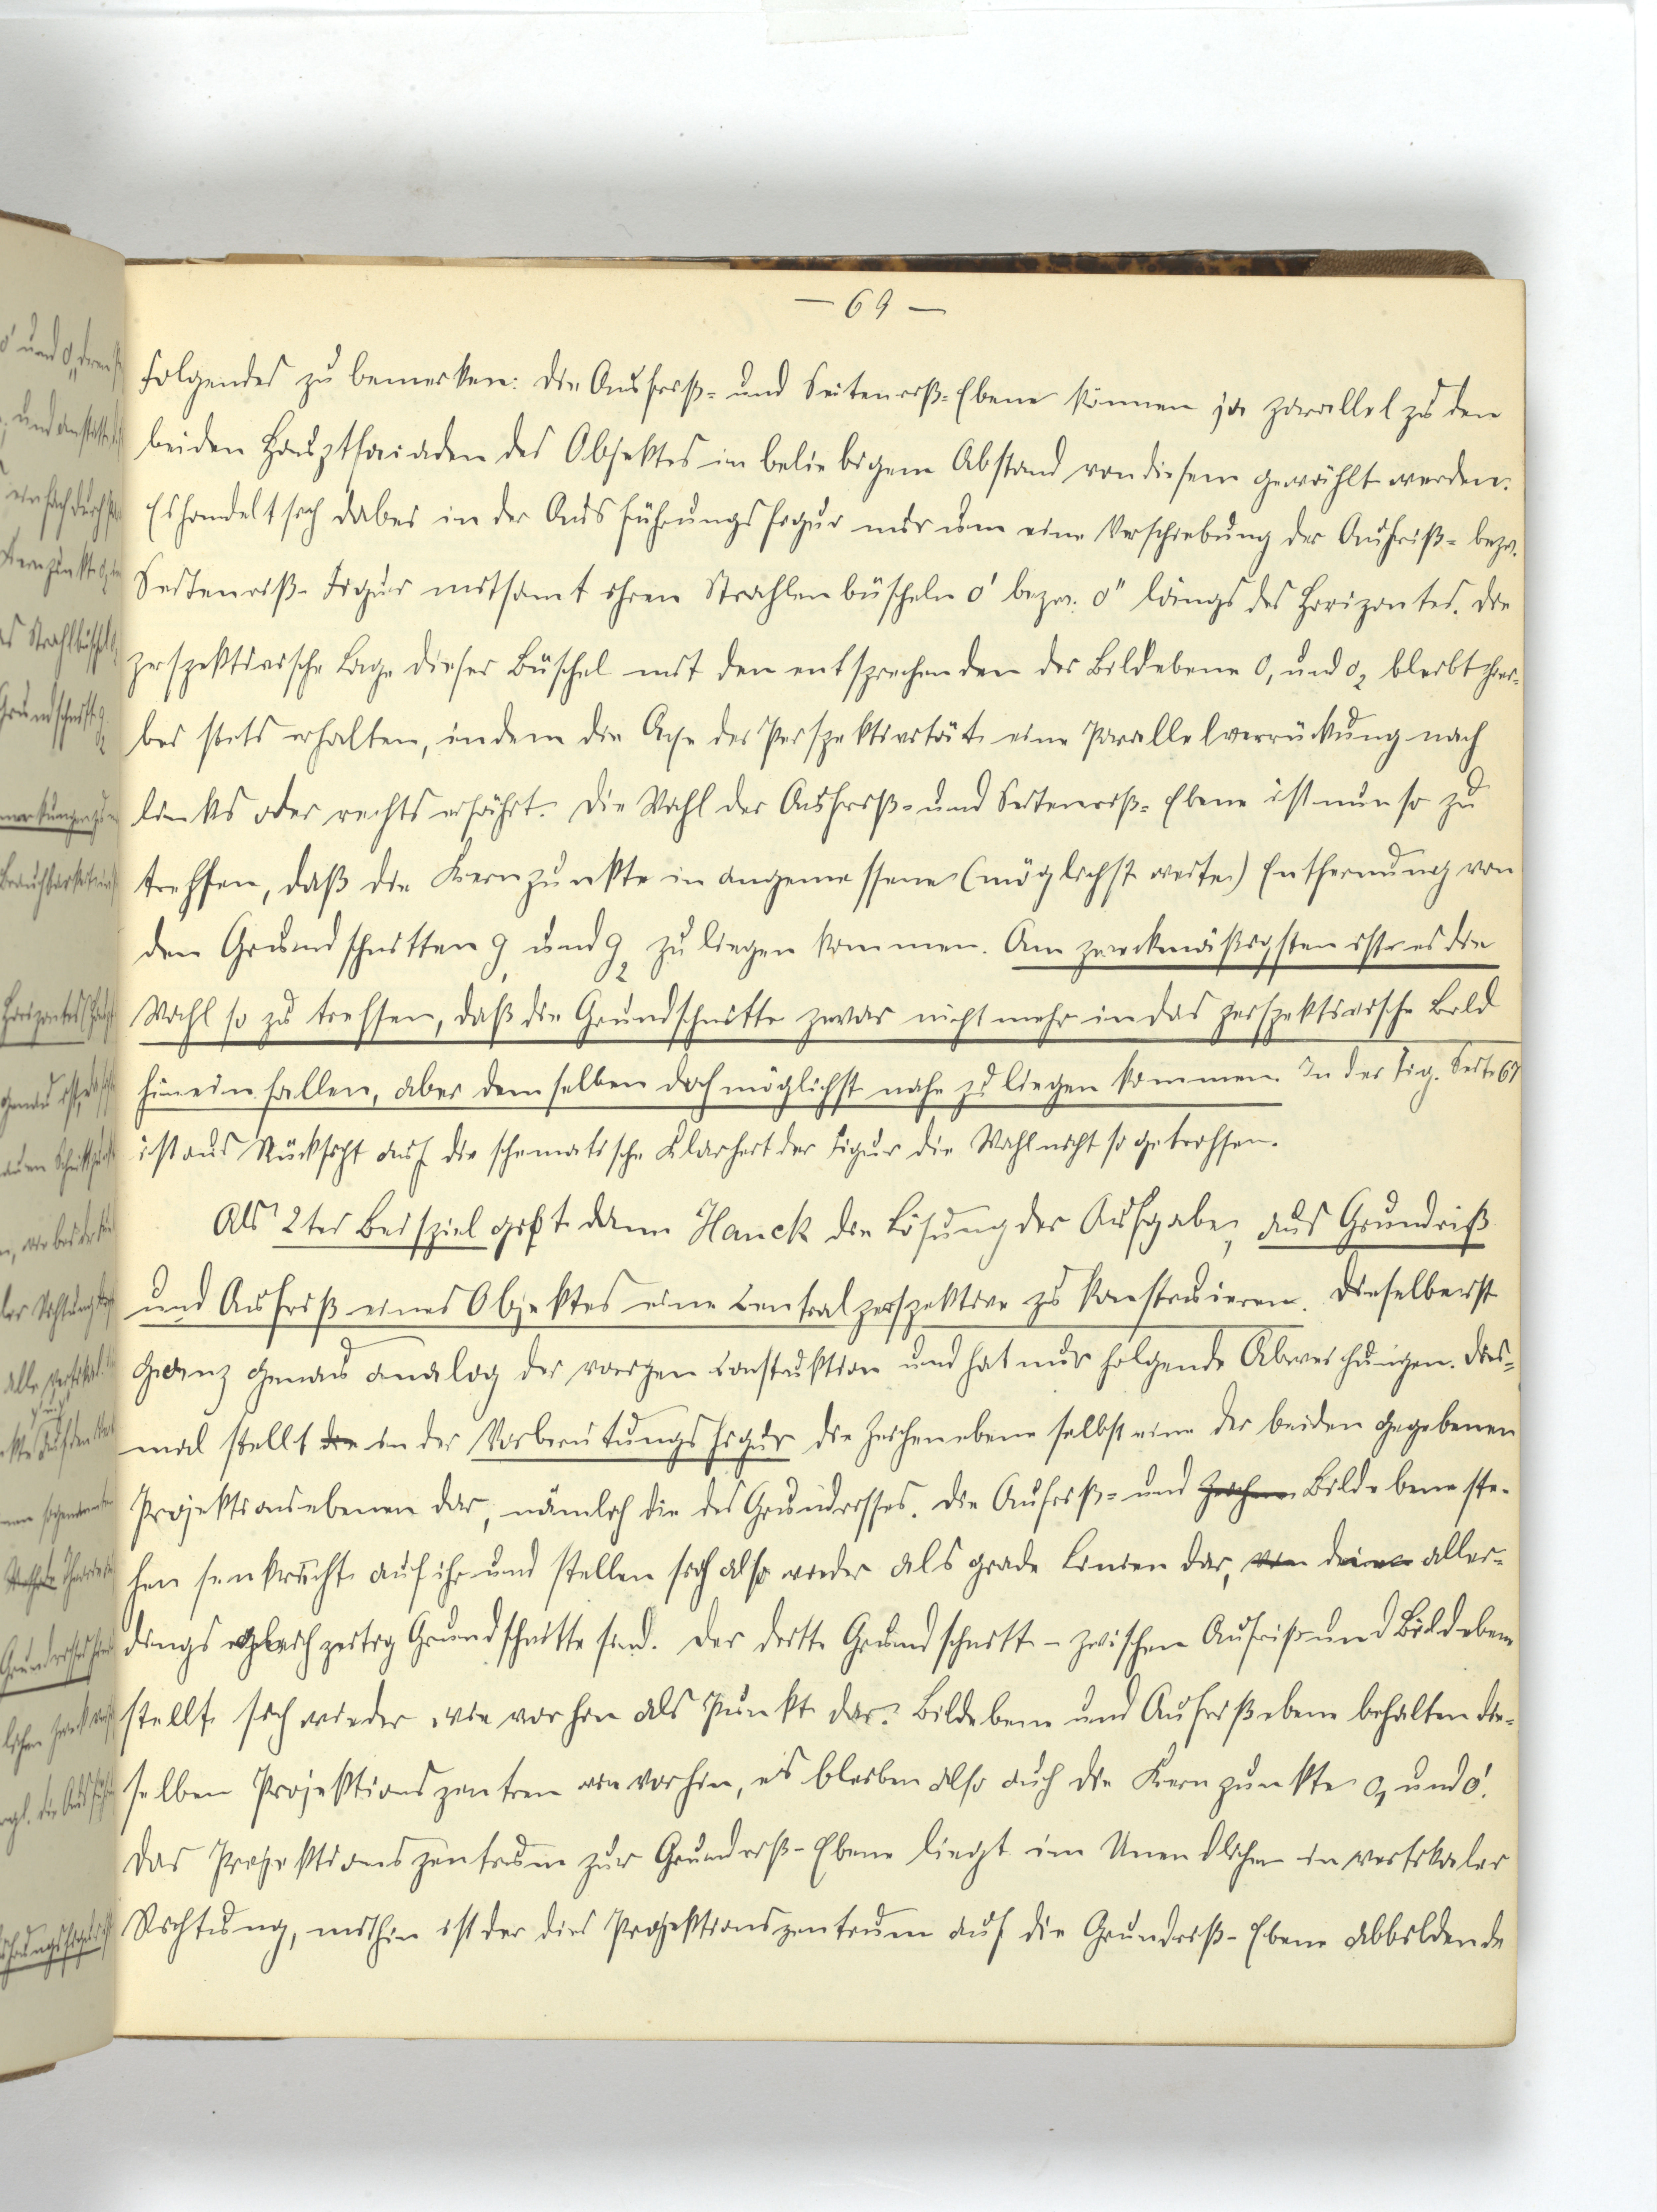 — 69 —
folgendes zu bemerken: die Aufriß- und Seitenriß-Ebene können ja parallel zu den
beiden Hauptfaiaden des Objektes in beliebigem Abstand von diesem gewählt werden.
Es handelt sich dabei in der Ausführungsfigur nur um eine Verschiebung der Aufriß- bezw.
Seitenriß-Figur mitsamt ihren Strahlenbüscheln o' bezw. o" längs des Horizontes. Die
perspektivische Lage dieser Büschel mit den entsprechenden der Bildebene o₁ und o₂ bleibt hier-
bei stets erhalten, indem die Axe der Perspektivität eine Parallelverrückung nach
links oder rechts erfährt. Die Wahl der Aufriß- und Seitenriß-Ebene ist nun so zu
treffen, daß die Kernpunkte in angemessener (möglichst weiter) Entfernung von
den Grundschnitten g₁ und g₂ zu liegen kommen. Am zweckmäßigsten ist es die
Wahl so zu treffen, daß die Grundschnitte zwar nicht mehr in das perspektivische Bild
hineinfallen, aber demselben doch möglichst nahe zu liegen kommen. In der Fig. Seite 67
ist aus Rücksicht auf die schematische Klarheit der Figur die Wahl nicht so getroffen.
Als 2tes Beispiel gibt dann Hauck die Lösung der Aufgabe, aus Grundriß
und Aufriß eines Objektes eine Centralperspektive zu konstruieren. Dieselbe ist
ganz genau analog der vorigen Construktion und hat nur folgende Abweichungen. Dies-
mal stellt die in der Vorbereitungsfigur die Zeichenebene selbst eine der beiden gegebenen
Projektionsebenen dar, nämlich die des Grundrisses. Die Aufriß- und Zeichen Bildebene ste-
hen senkrecht auf ihr und stellen sich also wieder als grade Linien dar, die aller-
dings gleichzeitig Grundschnitte sind. Der dritte Grundschnitt - zwischen Aufriß und Bildebene
stellt sich wieder wie vorhin als Punkt dar. Bildebene und Aufrißebene behalten die-
selben Projektionszentren wie vorhin, es bleiben also auch die Kernpunkte o₁ und o'.
Das Projektionszentrum zur Grundriß-Ebene liegt im Unendlichen in vertikaler
Richtung, mithin ist der dies Projektionszentrum auf die Grundriß-Ebene abbildende